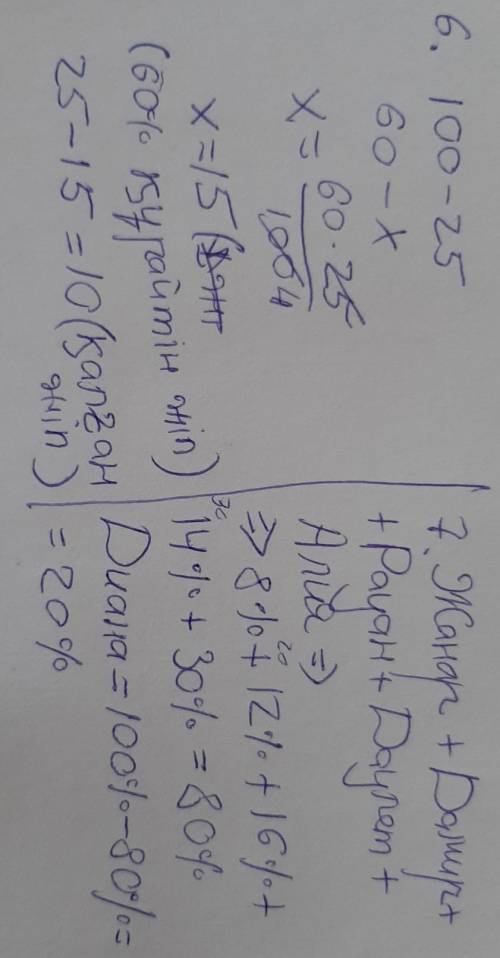 6. 100-25
60-x
x = 60·25 / 100 4
x = 15 (
(60% құрайтін жіп)
25-15 = 10 (қалған
жіп)
7. Жанар + Дамир +
+ Рауан + Даулет +
Алуа =>
=> 8% + 12% + 16% +
20
36
14% + 30% = 80%
Диана = 100% - 80% =
= 20%